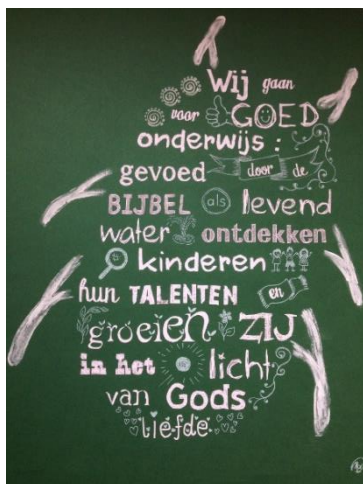 Wij gaan
voor GOED
onderwijs:
gevoed door de
BIJBEL als levend
water ontdekken
kinderen
hun TALENTEN en
groeien ZIJ
in het licht
van Gods
liefde.